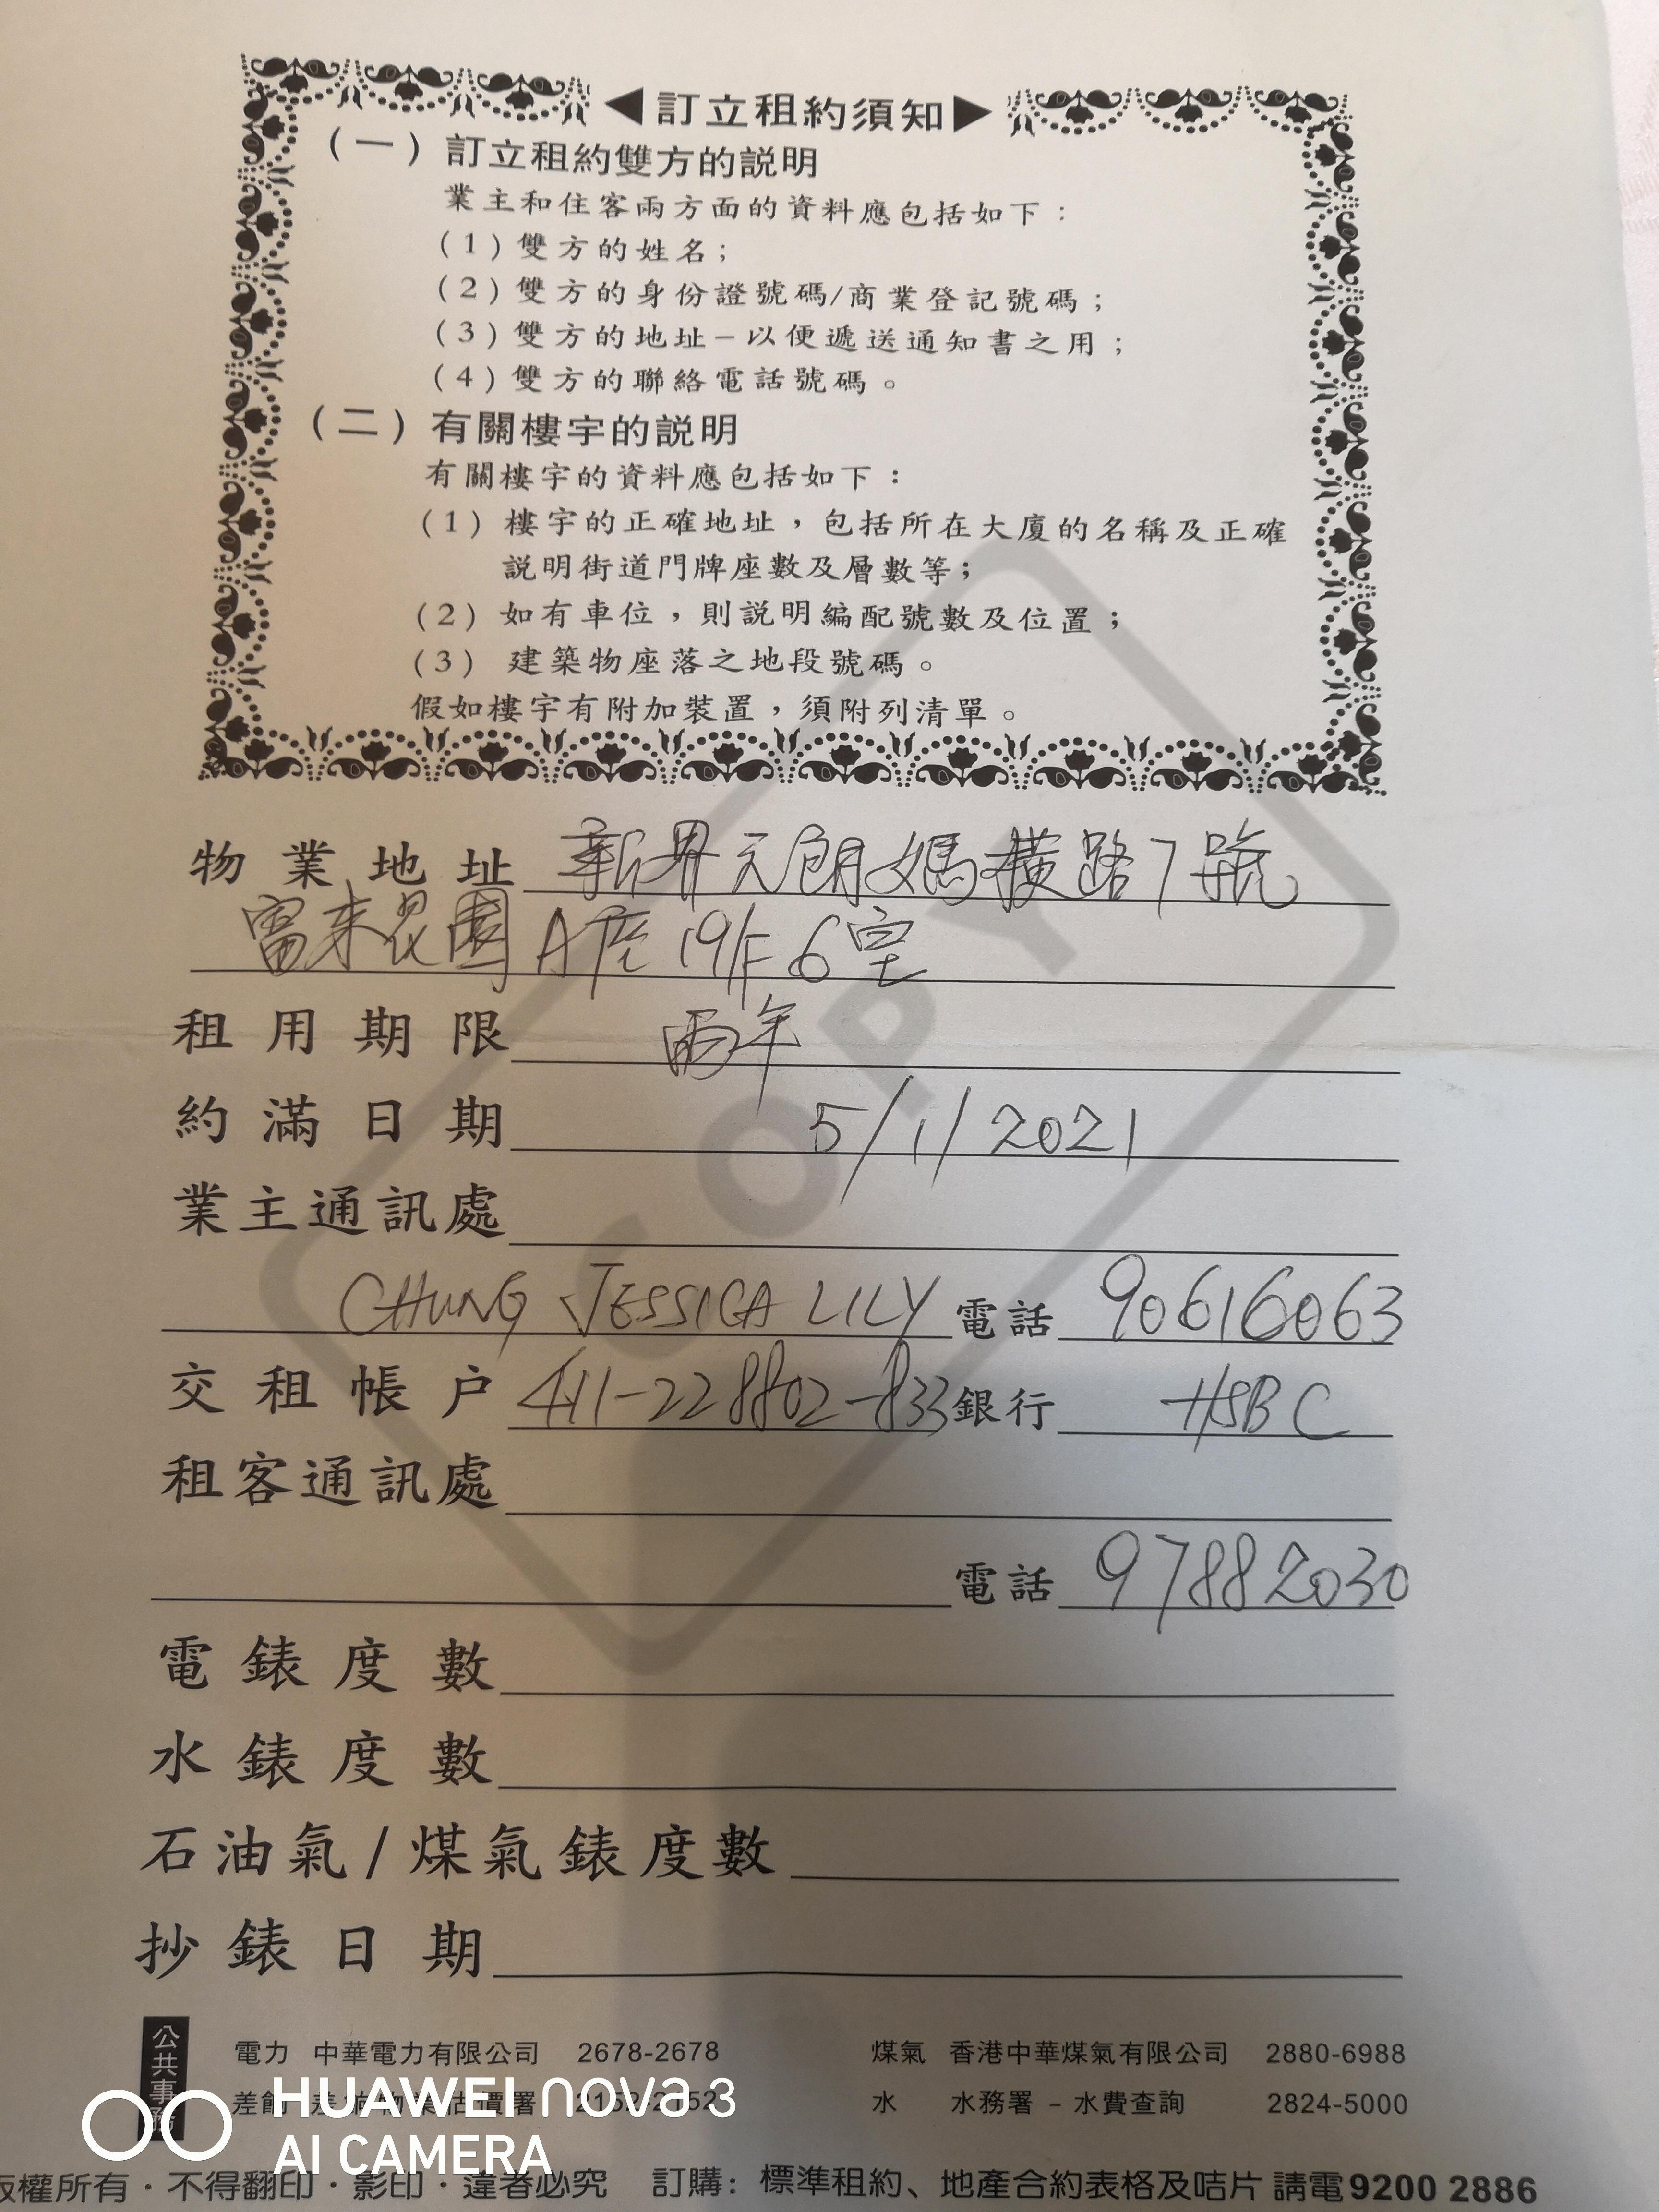 ◀訂立租約須知▶
(一) 訂立租約雙方的説明
業主和住客兩方面的資料應包括如下：
(1) 雙方的姓名；
(2) 雙方的身份證號碼/商業登記號碼；
(3) 雙方的地址－以便遞送通知書之用；
(4) 雙方的聯絡電話號碼。
(二) 有關樓宇的説明
有關樓宇的資料應包括如下：
(1) 樓宇的正確地址，包括所在大廈的名稱及正確
説明街道門牌座數及層數等；
(2) 如有車位，則説明編配號數及位置；
(3) 建築物座落之地段號碼。
假如樓宇有附加裝置，須附列清單。
物業地址 新界元朗媽橫路7號
富來花園 A座 19/F 6室
租用期限 兩年
約滿日期 5/1/2021
業主通訊處
CHUNG JESSICA LILY 電話 90616063
交租帳户 411-228802-833 銀行 HSBC
租客通訊處
電話 97882030
電錶度數
水錶度數
石油氣/煤氣錶度數
抄錶日期
公共事務
電力 中華電力有限公司 2678-2678 煤氣 香港中華煤氣有限公司 2880-6988
差餉 差餉物業估價署 2152-2152 水 水務署－水費查詢 2824-5000
版權所有·不得翻印·影印·違者必究 訂購：標準租約、地產合約表格及咭片 請電9200 2886
COPY
HUAWEI nova 3
AI CAMERA